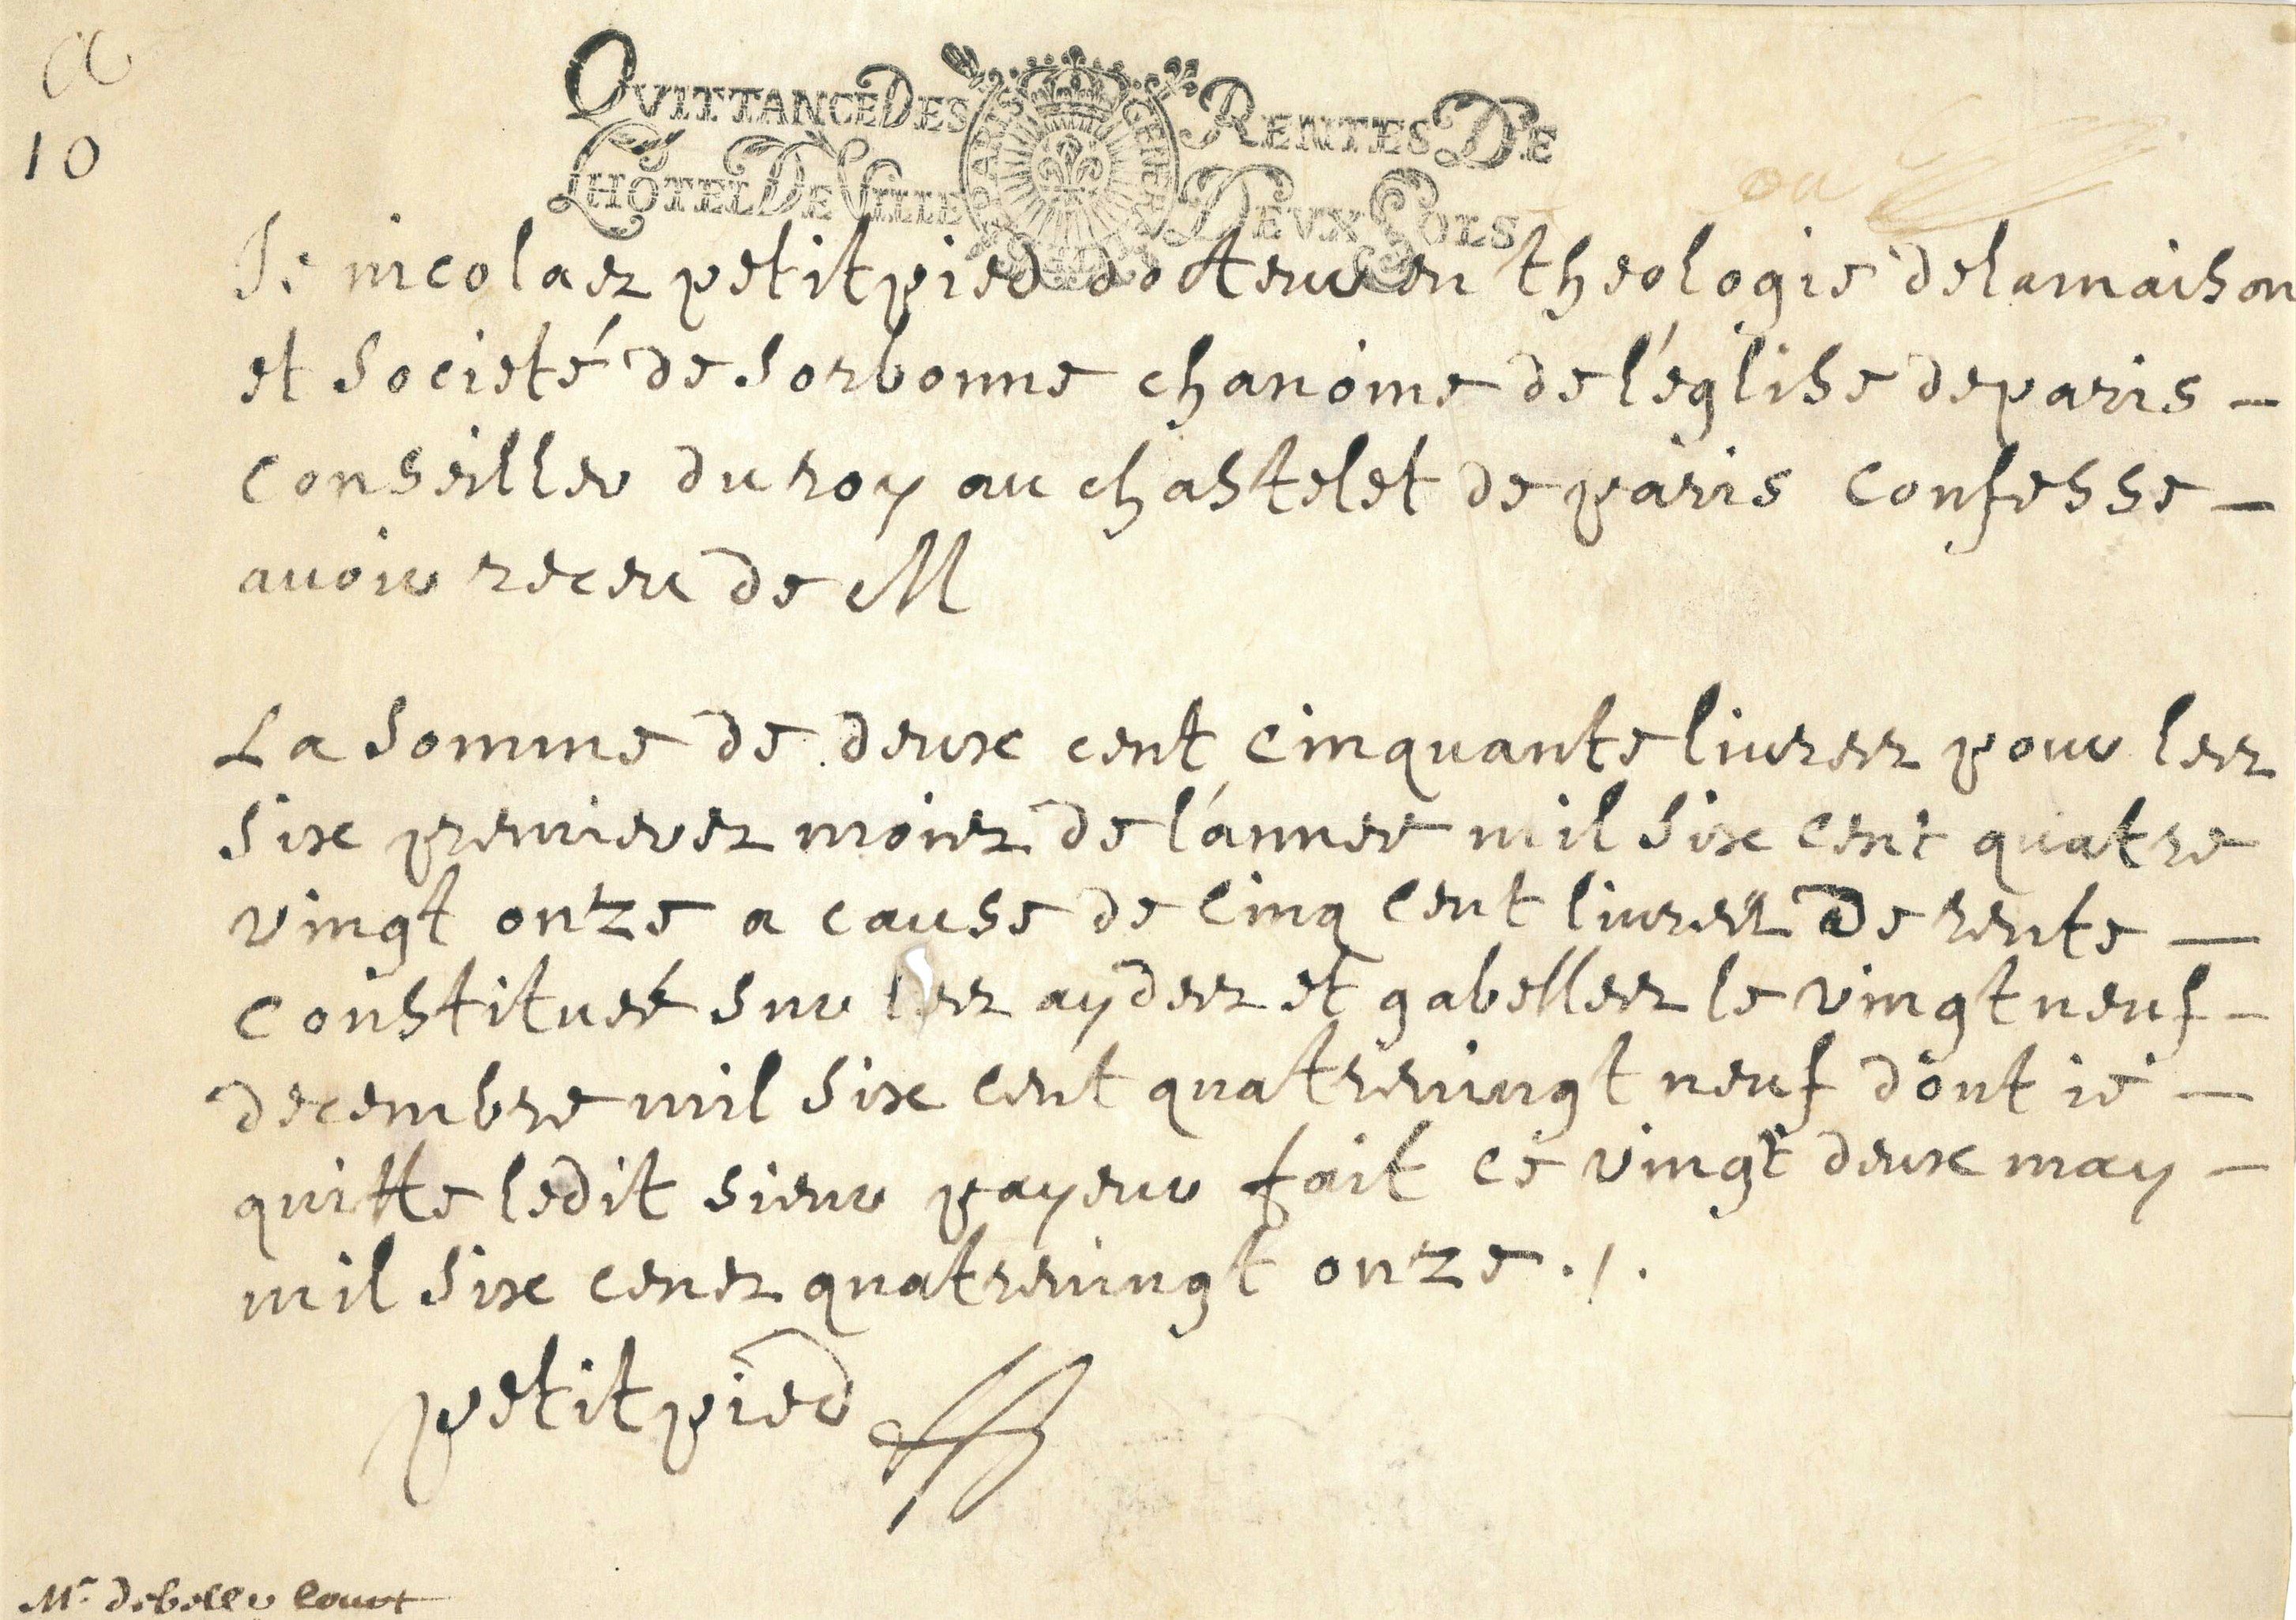 a
10
QVITTANCE DES RENTES DE
LHOTEL DE VILLE DEVX SOLS
PARIS GENER
Je nicolas petitpied docteur en theologie de la maison
et societé de sorbonne chanoine de l'eglise de paris –
conseiller du roy au chastelet de paris confesse –
auoir receu de M
La somme de deux cent cinquante liures pour les
six premieres mois de l'annee mil six cent quatre
vingt onze a cause de cinq cent liures de rente –
constitueé sur les aydes et gabelles le vingt neuf –
decembre mil six cent quatreuingt neuf dont ie –
quitte ledit sieur payeur fait ce vingt deux may –
mil six cens quatreuingt onze ./.
petitpied
Mr. debelle court